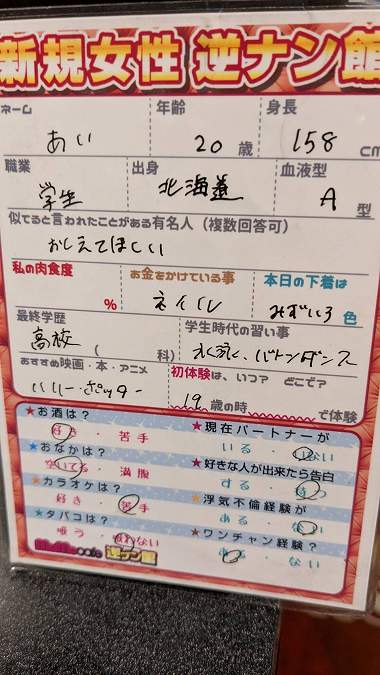 新規女性 逆ナン館
ネーム 年齢 身長
あい 20歳 158cm
職業 出身 血液型
学生 北海道 A型
似てると言われたことがある有名人（複数回答可）
おしえてほしい
私の肉食度 お金をかけている事 本日の下着は
% ネイル みずいろ色
最終学歴 学生時代の習い事
高校（ 科） 水泳、バトンダンス
おすすめ映画・本・アニメ 初体験は、いつ？ どこで？
ハリーポッター 19歳の時 で体験
★お酒は？ ★現在パートナーが
好き・苦手 いる・いない
★おなかは？ ★好きな人が出来たら告白
空いてる・満腹 する・待つ
★カラオケは？ ★浮気不倫経験が
好き・苦手 ある・ない
★タバコは？ ★ワンチャン経験？
吸う・吸わない ある・ない
cafe 逆ナン館